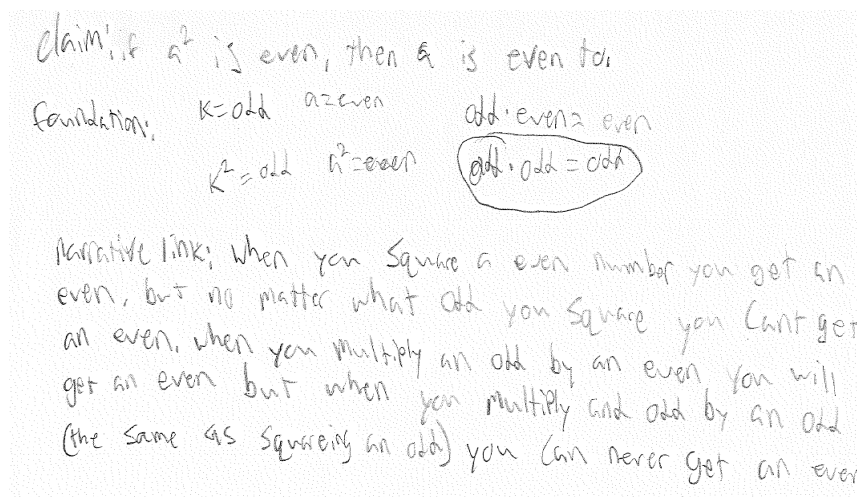 claim: if a² is even, then a is even to.
foundation: K=odd a=even odd·even= even
K²=odd a²=even odd·odd=odd
narrative link: when you square a even number you get an
even, but no matter what odd you square you cant get
an even. when you multiply an odd by an even you will
get an even but when you multiply and odd by an odd
(the same as squareing an odd) you can never get an even